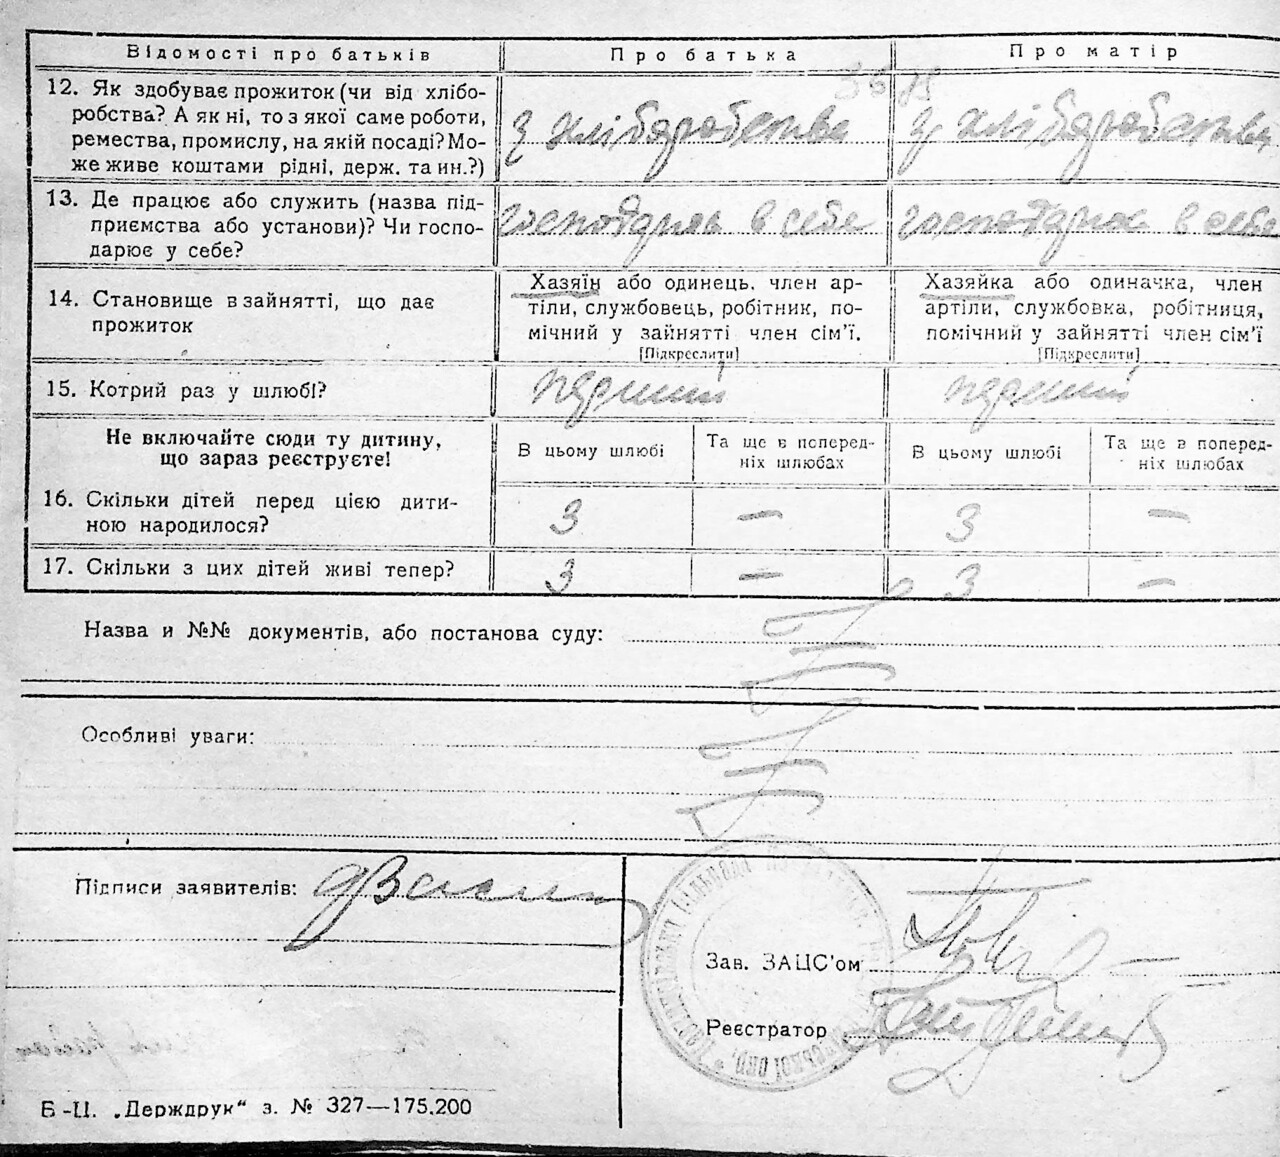 Відомості про батьків
Про батька
Про матір
12. Як здобуває прожиток (чи від хлібо-
робства? А як ні, то з якої саме роботи,
ремества, промислу, на якій посаді? Мо-
же живе коштами рідні, держ. та ин.?)
з хліборобства
з хліборобства
13. Де працює або служить (назва під-
приємства або установи)? Чи госпо-
дарює у себе?
господарює в себе
господарює в себе
14. Становище в зайнятті, що дає
прожиток
Хазяїн або одинець, член ар-
тіли, службовець, робітник, по-
мічний у зайнятті член сім'ї.
[Підкреслити]
Хазяйка або одиначка, член
артіли, службовка, робітниця,
помічний у зайнятті член сім'ї
[Підкреслити]
15. Котрий раз у шлюбі?
перший
перший
Не включайте сюди ту дитину,
що зараз реєструєте!
В цьому шлюбі
Та ще в поперед-
ніх шлюбах
В цьому шлюбі
Та ще в поперед-
ніх шлюбах
16. Скільки дітей перед цією дити-
ною народилося?
3
—
3
—
17. Скільки з цих дітей живі тепер?
3
—
3
—
Назва и №№ документів, або постанова суду:
Особливі уваги:
Підписи заявителів:
Зав. ЗАЦС'ом
Реєстратор
Б-Ц. „Держдрук“ з. № 327—175.200